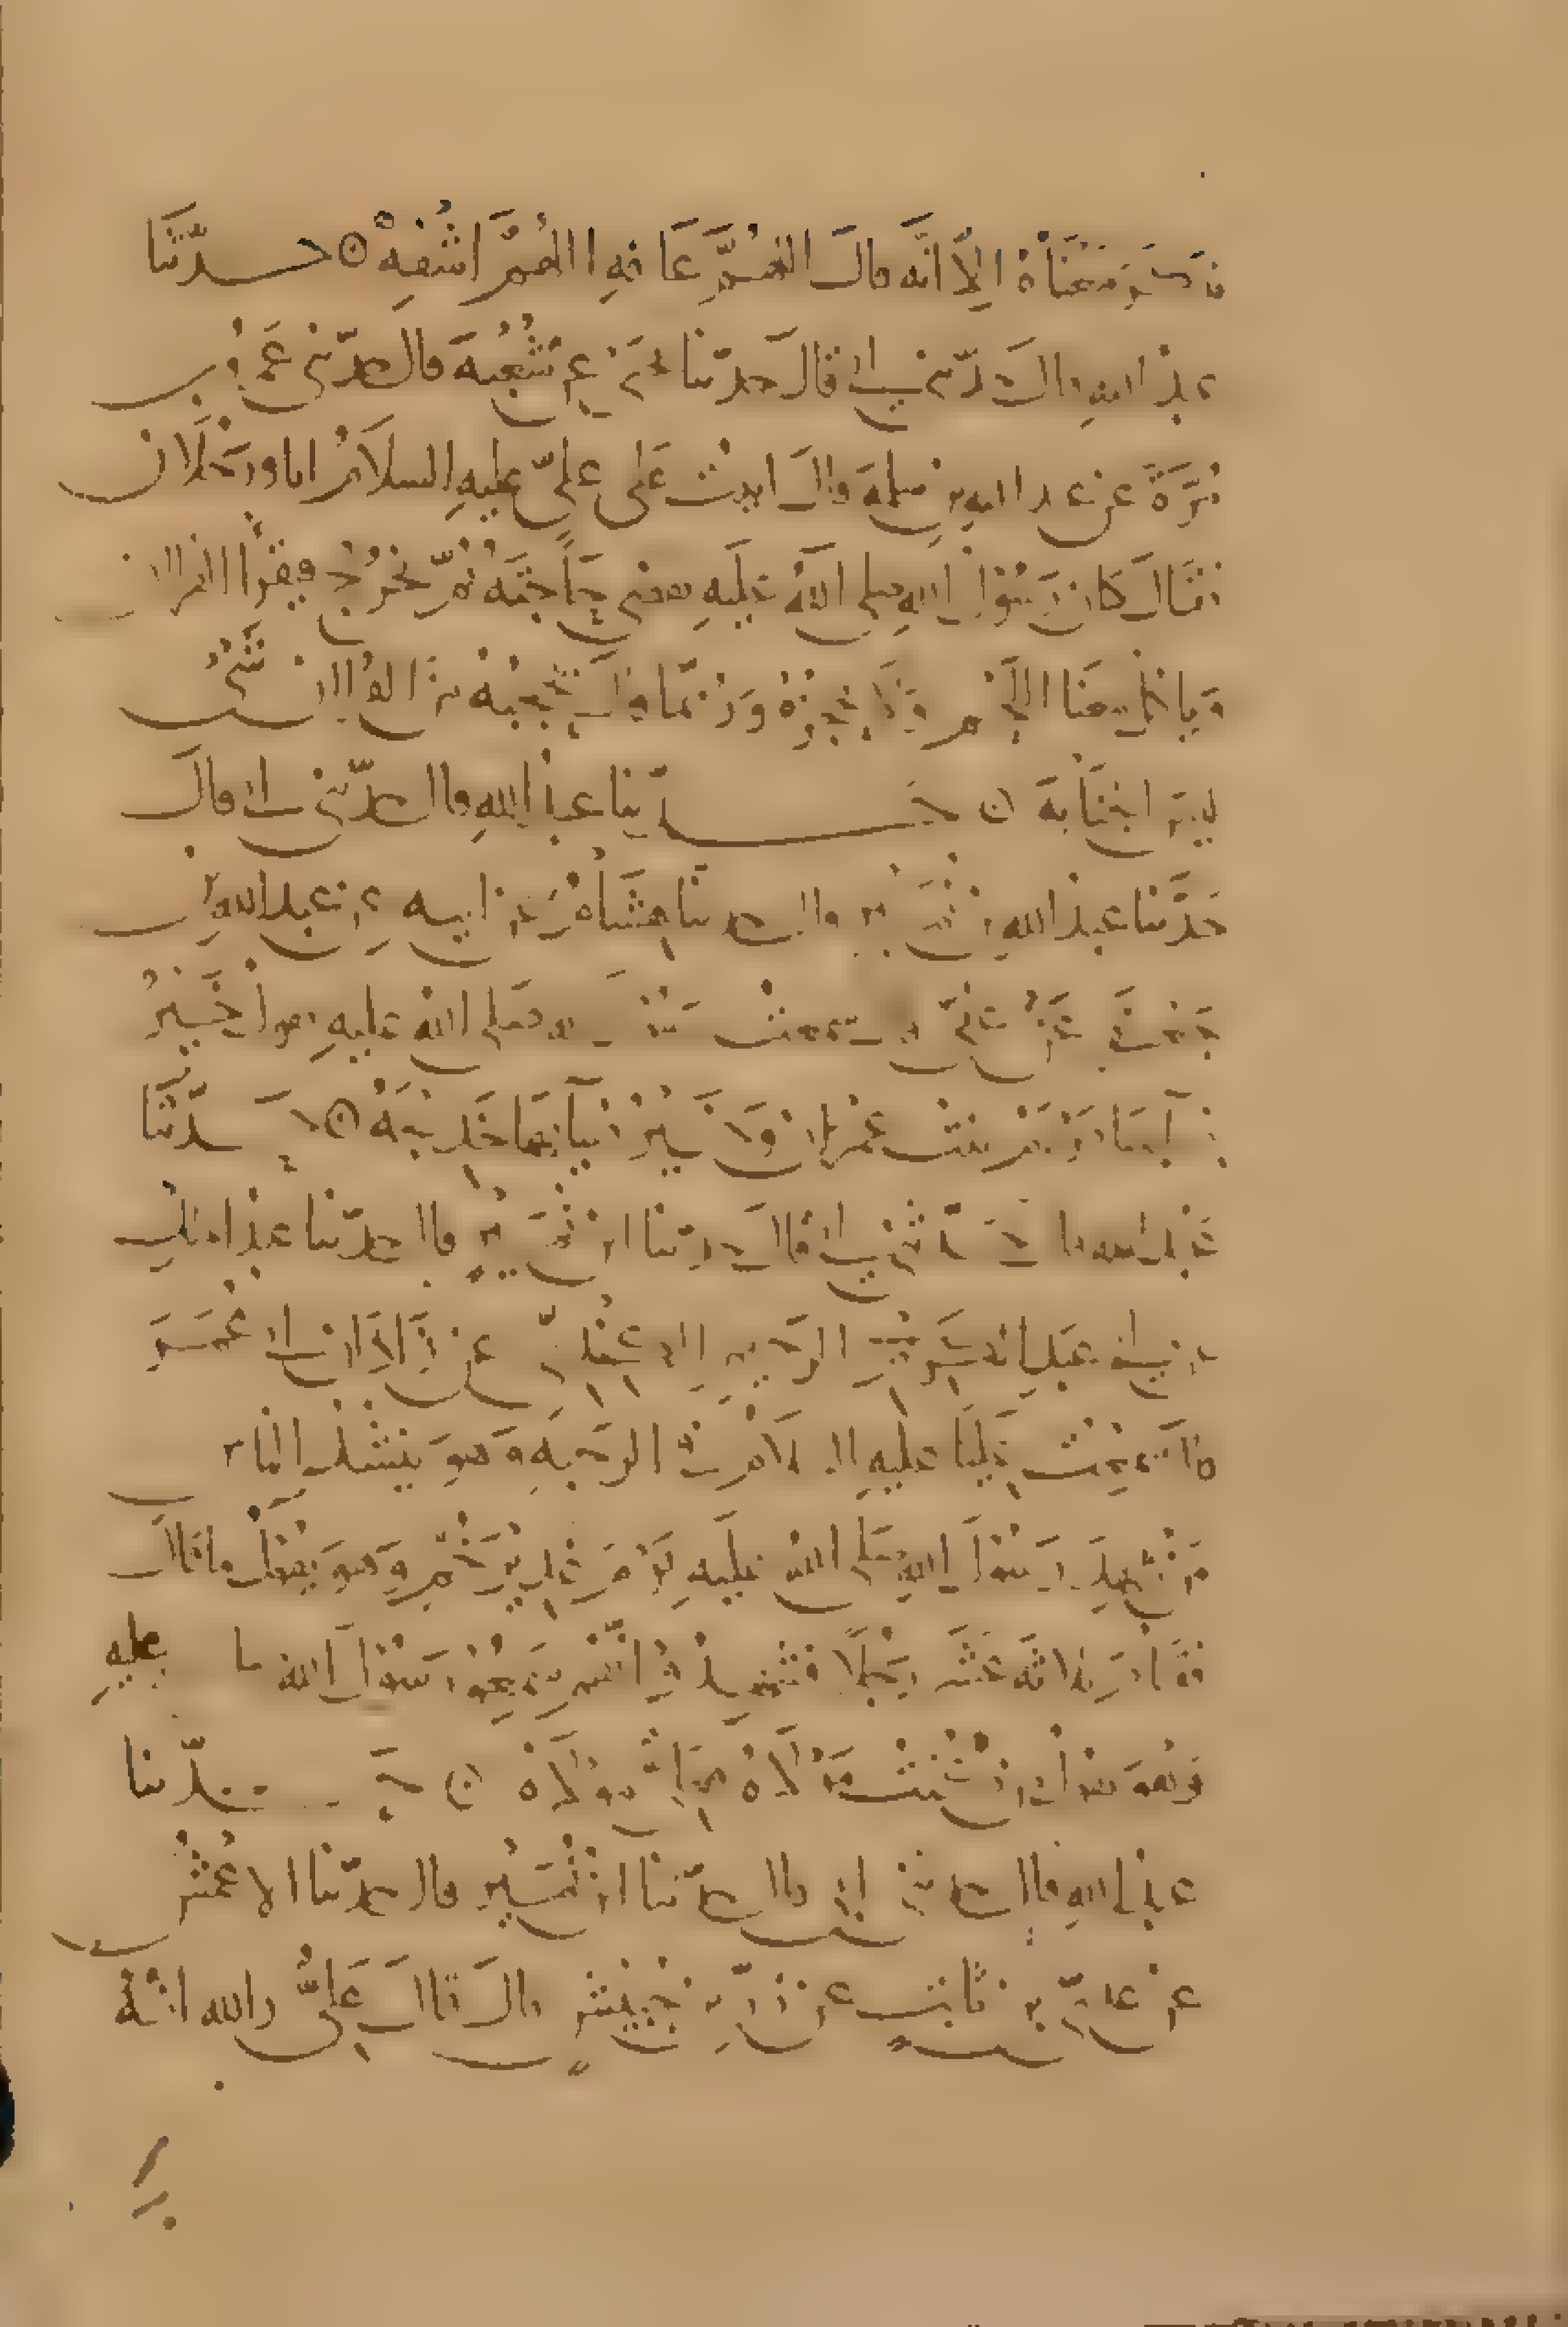 فذكر معناه الا انه قال اللهم عافه اللهم اشفه ۞ حدثنا
عبد الله قال حدثني ابي قال حدثنا يحيى عن شعبة قال حدثني عمرو بن
مرة عن عبد الله بن سلمة قال اتيت على علي عليه السلام انا ورجلان
فقال كان رسول الله صلى الله عليه يقضي حاجته ثم يخرج فيقرا القران
وياكل معنا اللحم ولا يحجزه وربما قال يحجبه من القران شي
ليس الجنابة ۞ حدثنا عبد الله قال حدثني ابي قال
حدثنا عبد الله بن نمير قال حدثنا هشام عن ابيه عن عبد الله بن
جعفر عن علي قال سمعت رسول الله صلى الله عليه يقول خير
نسايها مريم بنت عمران وخير نسايها خديجة ۞ حدثنا
عبد الله قال حدثني ابي قال حدثنا ابن نمير قال حدثنا عبد الملك
عن ابي عبد الرحيم الكندي عن زاذان ابي عمر
قال سمعت عليا عليه السلام في الرحبة وهو ينشد الناس
من شهد رسول الله صلى الله عليه يوم غدير خم وهو يقول ما قال
فقام ثلاثة عشر رجلا فشهدوا انهم سمعوا رسول الله صلى عليه
وهو يقول من كنت مولاه فعلي مولاه ۞ حدثنا
عبد الله قال حدثني ابي قال حدثنا ابن نمير قال حدثنا الاعمش
عن عدي بن ثابت عن زر بن حبيش قال قال علي والله انه